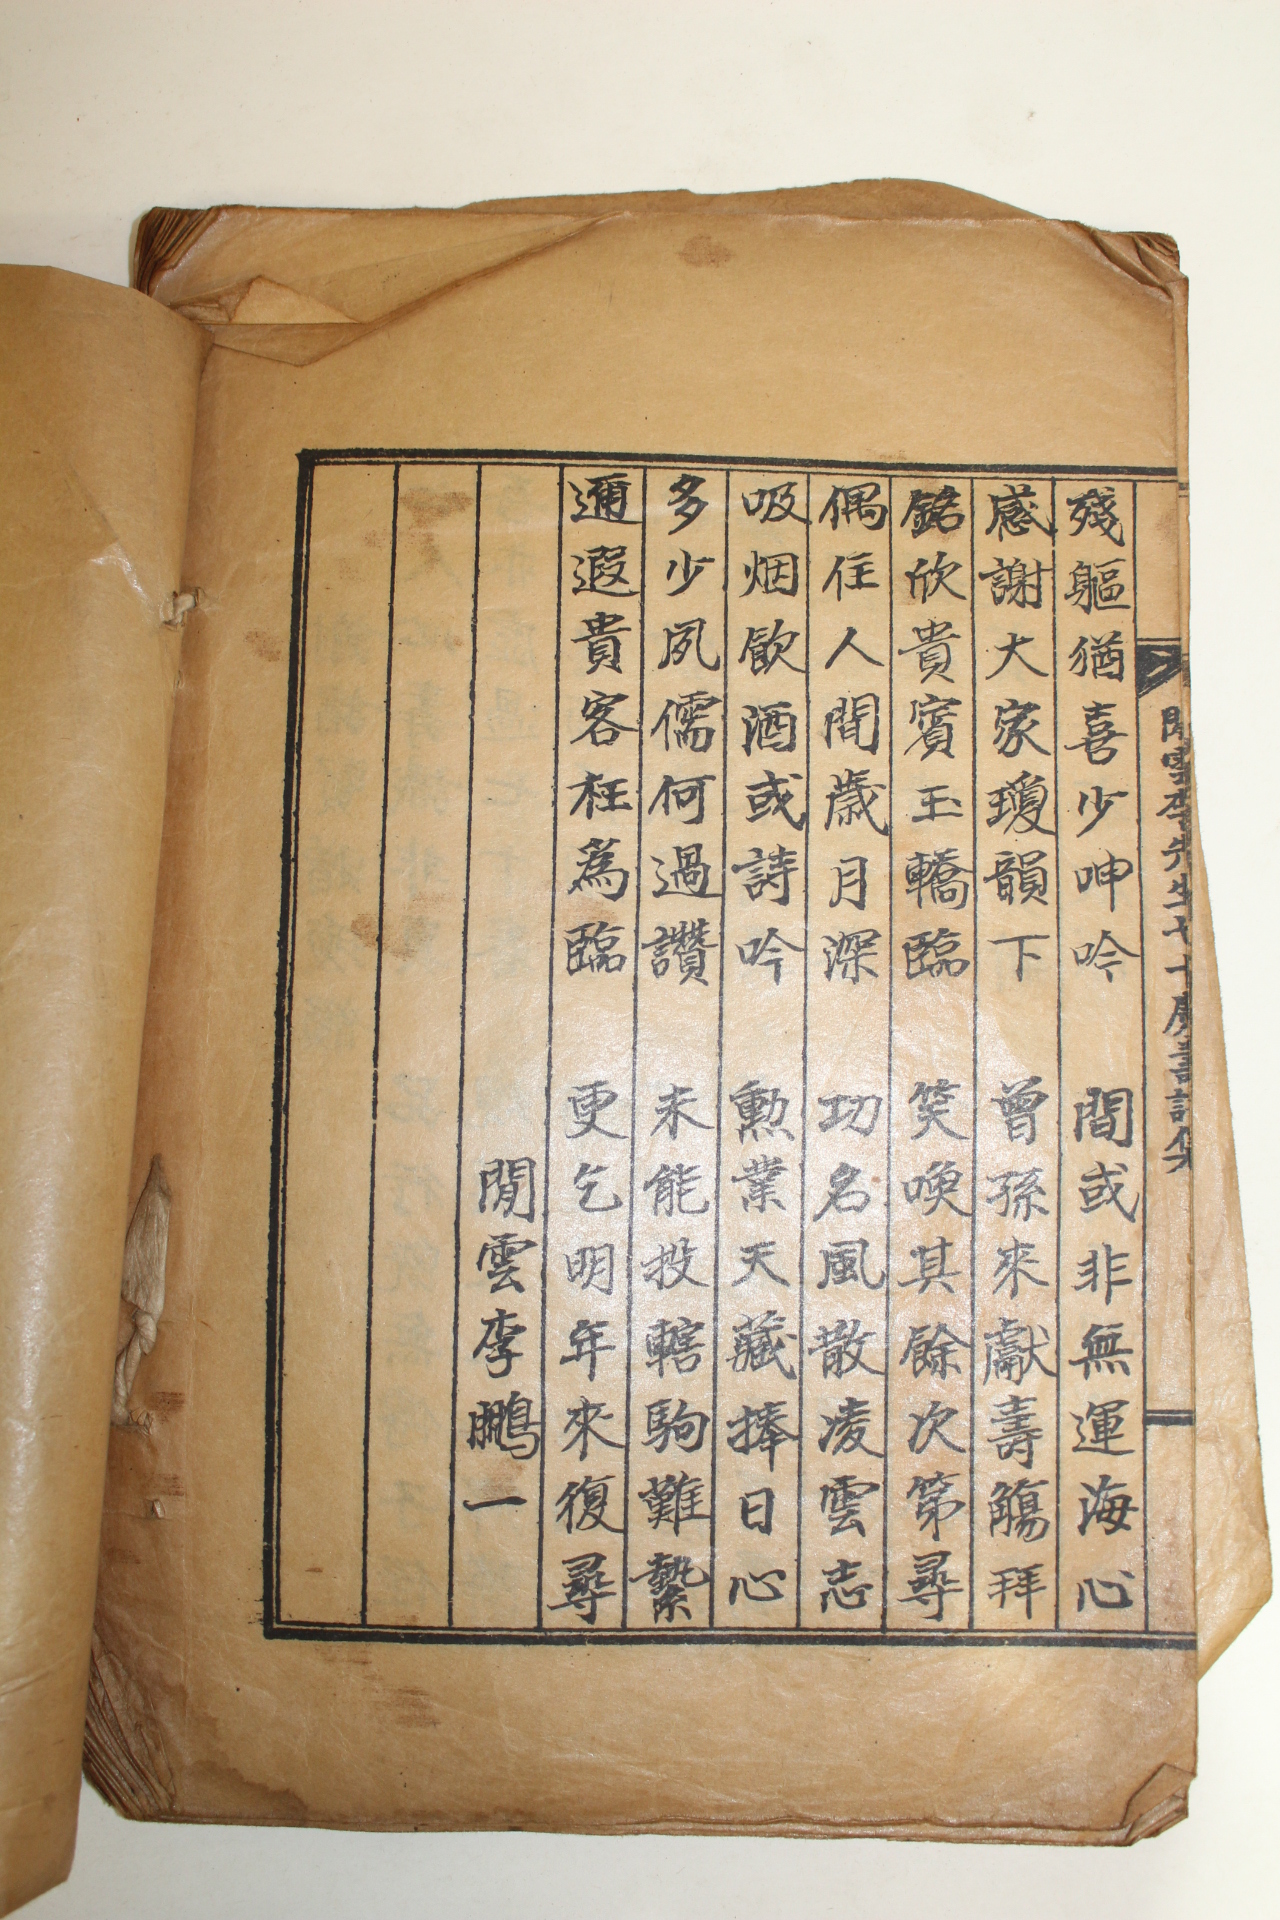 閒雲李先生七十康壽詩集
殘軀猶喜少呻吟 間或非無運海心
感謝大家瓊韻下 曾孫來獻壽觴拜
銘欣貴賓玉轎臨 笑喚其餘次第尋
偶住人間歲月深 功名風散凌雲志
吸烟飮酒或詩吟 勳業天藏捧日心
多少夙儒何過讚 未能投轄駒難縶
邇遐貴客枉爲臨 更乞明年來復尋
閒雲李鵬一